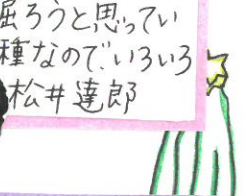 掘ろうと思ってい
種なのでいろいろ
松井達郎